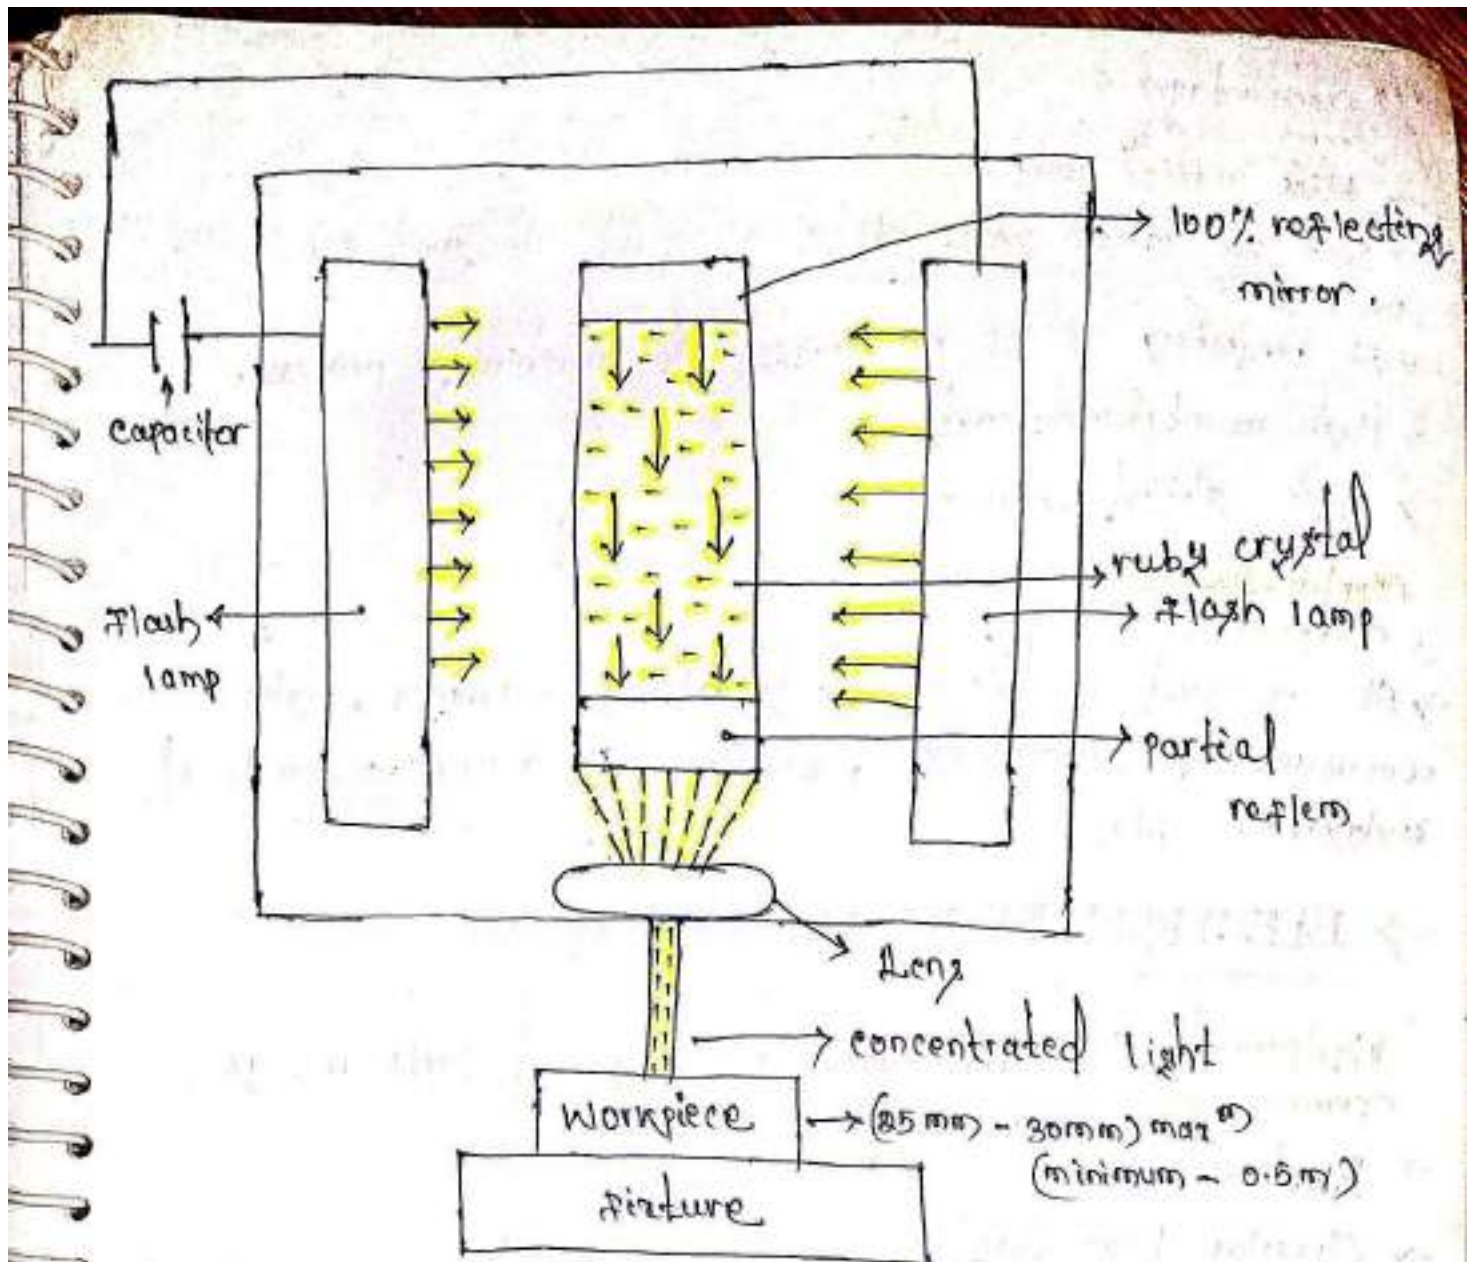 100% reflecting
mirror.
capacitor
ruby crystal
flash
lamp
flash lamp
partial
reflem
Lens
concentrated light
workpiece
(25mm - 30mm) max m)
(minimum - 0.5m)
fixture